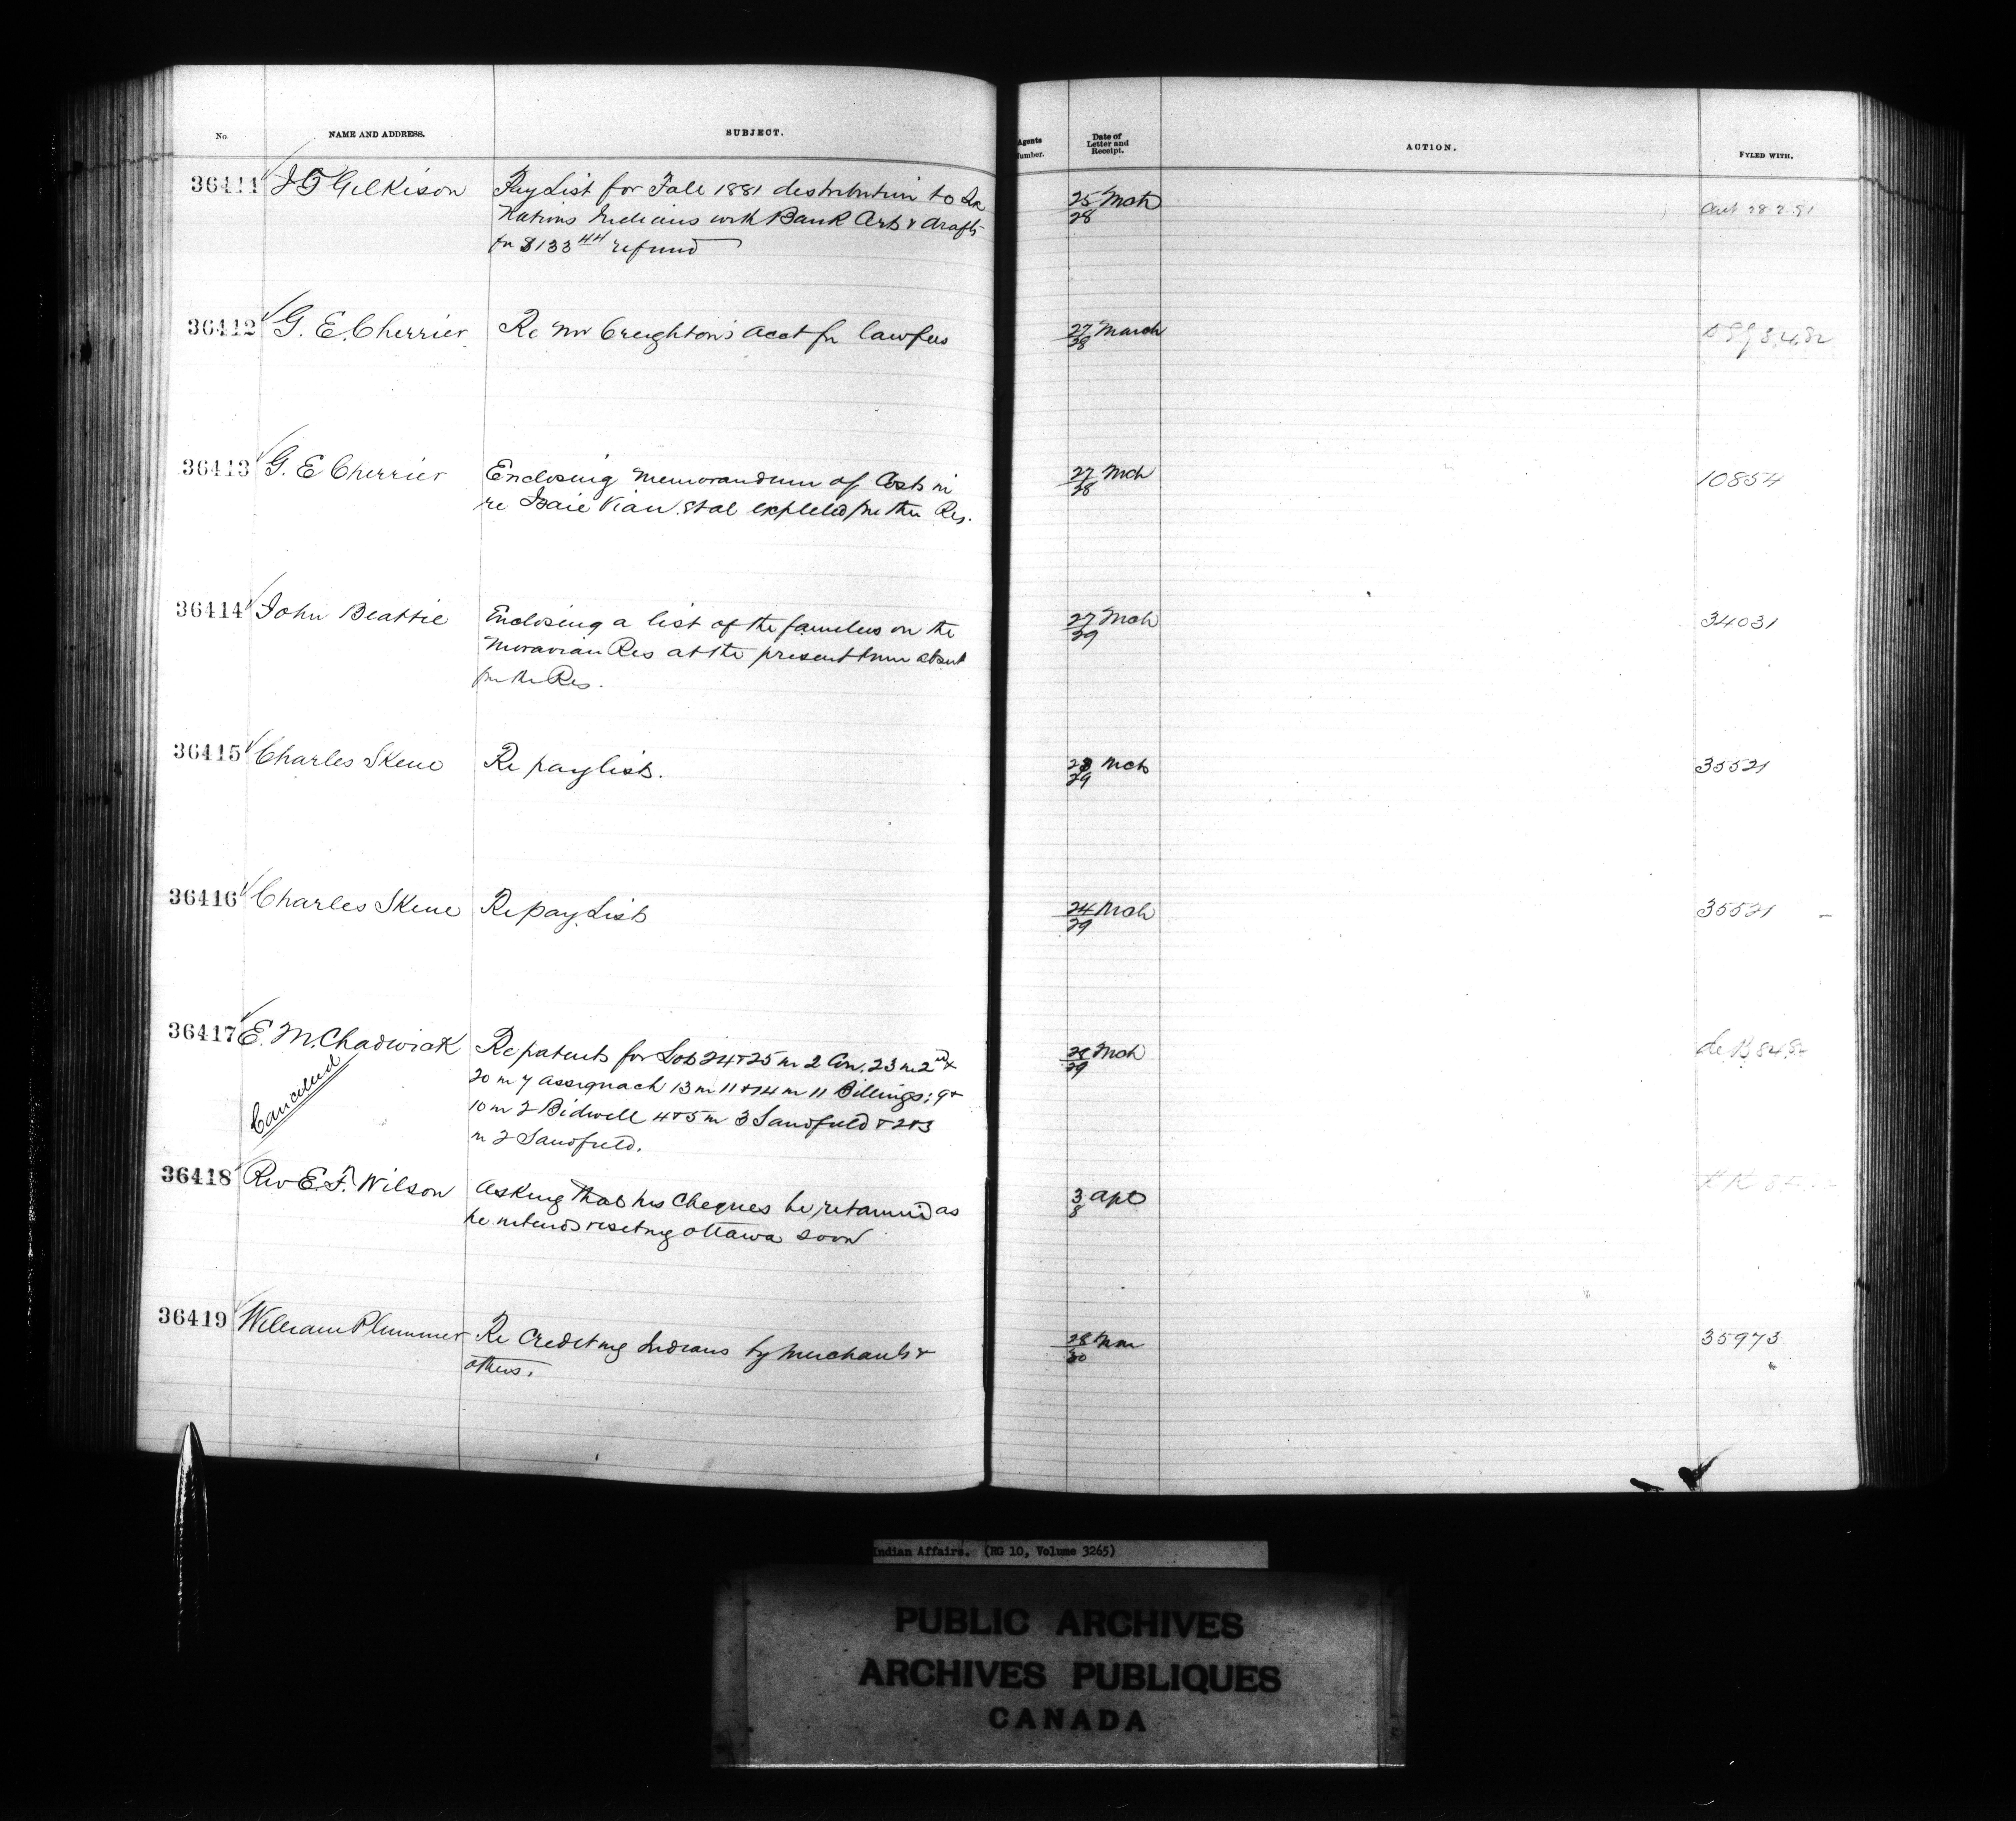 No. NAME AND ADDRESS. SUBJECT. Agents Number. Date of Letter and Receipt. ACTION. FYLED WITH.
36411 J T Gilkison Pay List for Fall 1881 distribution to Six 25 Mch
Nations Indians with Bank Certs & drafts 28
for $133 44 refund
36412 G. E. Cherrier Re Mr Creighton's acct for law fees 27 March
28
36413 G. E Cherrier Enclosing memorandum of Costs in 27 Mch 10854
re Isaie Viau et al expelled fm the Res. 28
36414 John Beattie Enclosing a list of the families on the 27 Mch 34031
Moravian Res at the present time absent 29
fm the Res.
36415 Charles Skene Re pay lists. 28 Mch 35521
29
36416 Charles Skene Re pay List 24 Mch 35521
29
36417 E. M. Chadwick Re patents for Lots 24 & 25 in 2 Con. 23 in 2nd & 28 Mch
Canceled 20 in 7 Assiginack 13 in 11 & 14 in 11 Billings; 9 & 29
10 in 2 Bidwell 4 & 5 in 3 Sandfield & 2 & 3
in 2 Sandfield.
36418 Rev E. F. Wilson Asking that his Cheques be retained as 3 Apl
he intends visiting Ottawa soon 8
36419 William Plummer Re Crediting Indians by Merchants & 28 35973
others. 30
Indian Affairs. (RG 10, Volume 3265)
PUBLIC ARCHIVES
ARCHIVES PUBLIQUES
CANADA